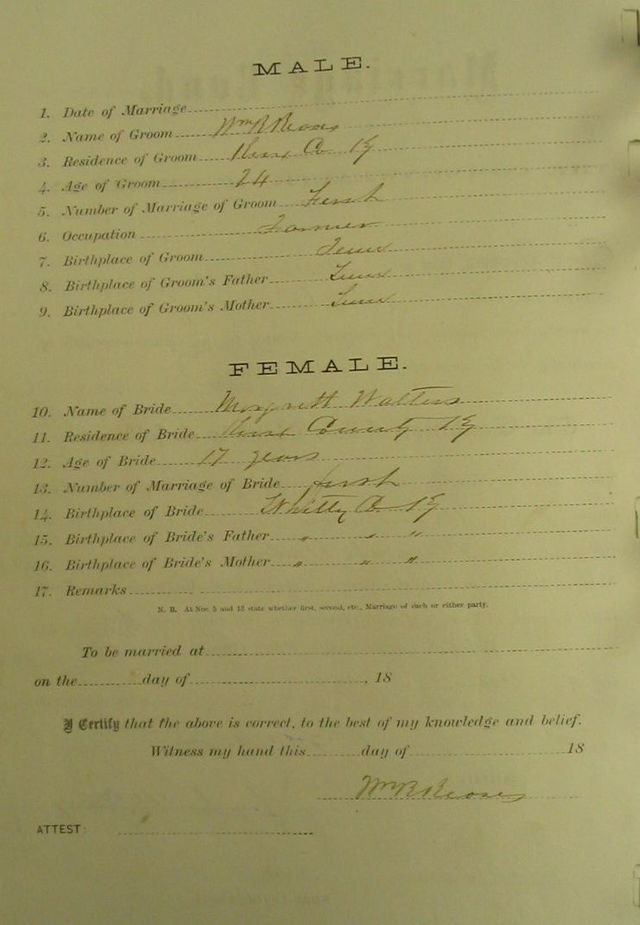 MALE.
1. Date of Marriage
2. Name of Groom Wm R
3. Residence of Groom Knox Co Ky
4. Age of Groom 24
5. Number of Marriage of Groom First
6. Occupation Farmer
7. Birthplace of Groom Tenn
8. Birthplace of Groom's Father Tenn
9. Birthplace of Groom's Mother Tenn
FEMALE.
10. Name of Bride Margrett Walters
11. Residence of Bride Knox County Ky
12. Age of Bride 17 years
13. Number of Marriage of Bride first
14. Birthplace of Bride Whitly Co Ky
15. Birthplace of Bride's Father " " "
16. Birthplace of Bride's Mother " " "
17. Remarks
N. B. At Nos. 5 and 13 state whether first, second, etc., Marriage of each or either party.
To be married at
on the day of , 18
I Certify that the above is correct, to the best of my knowledge and belief.
Witness my hand this day of 18
Wm R
ATTEST: